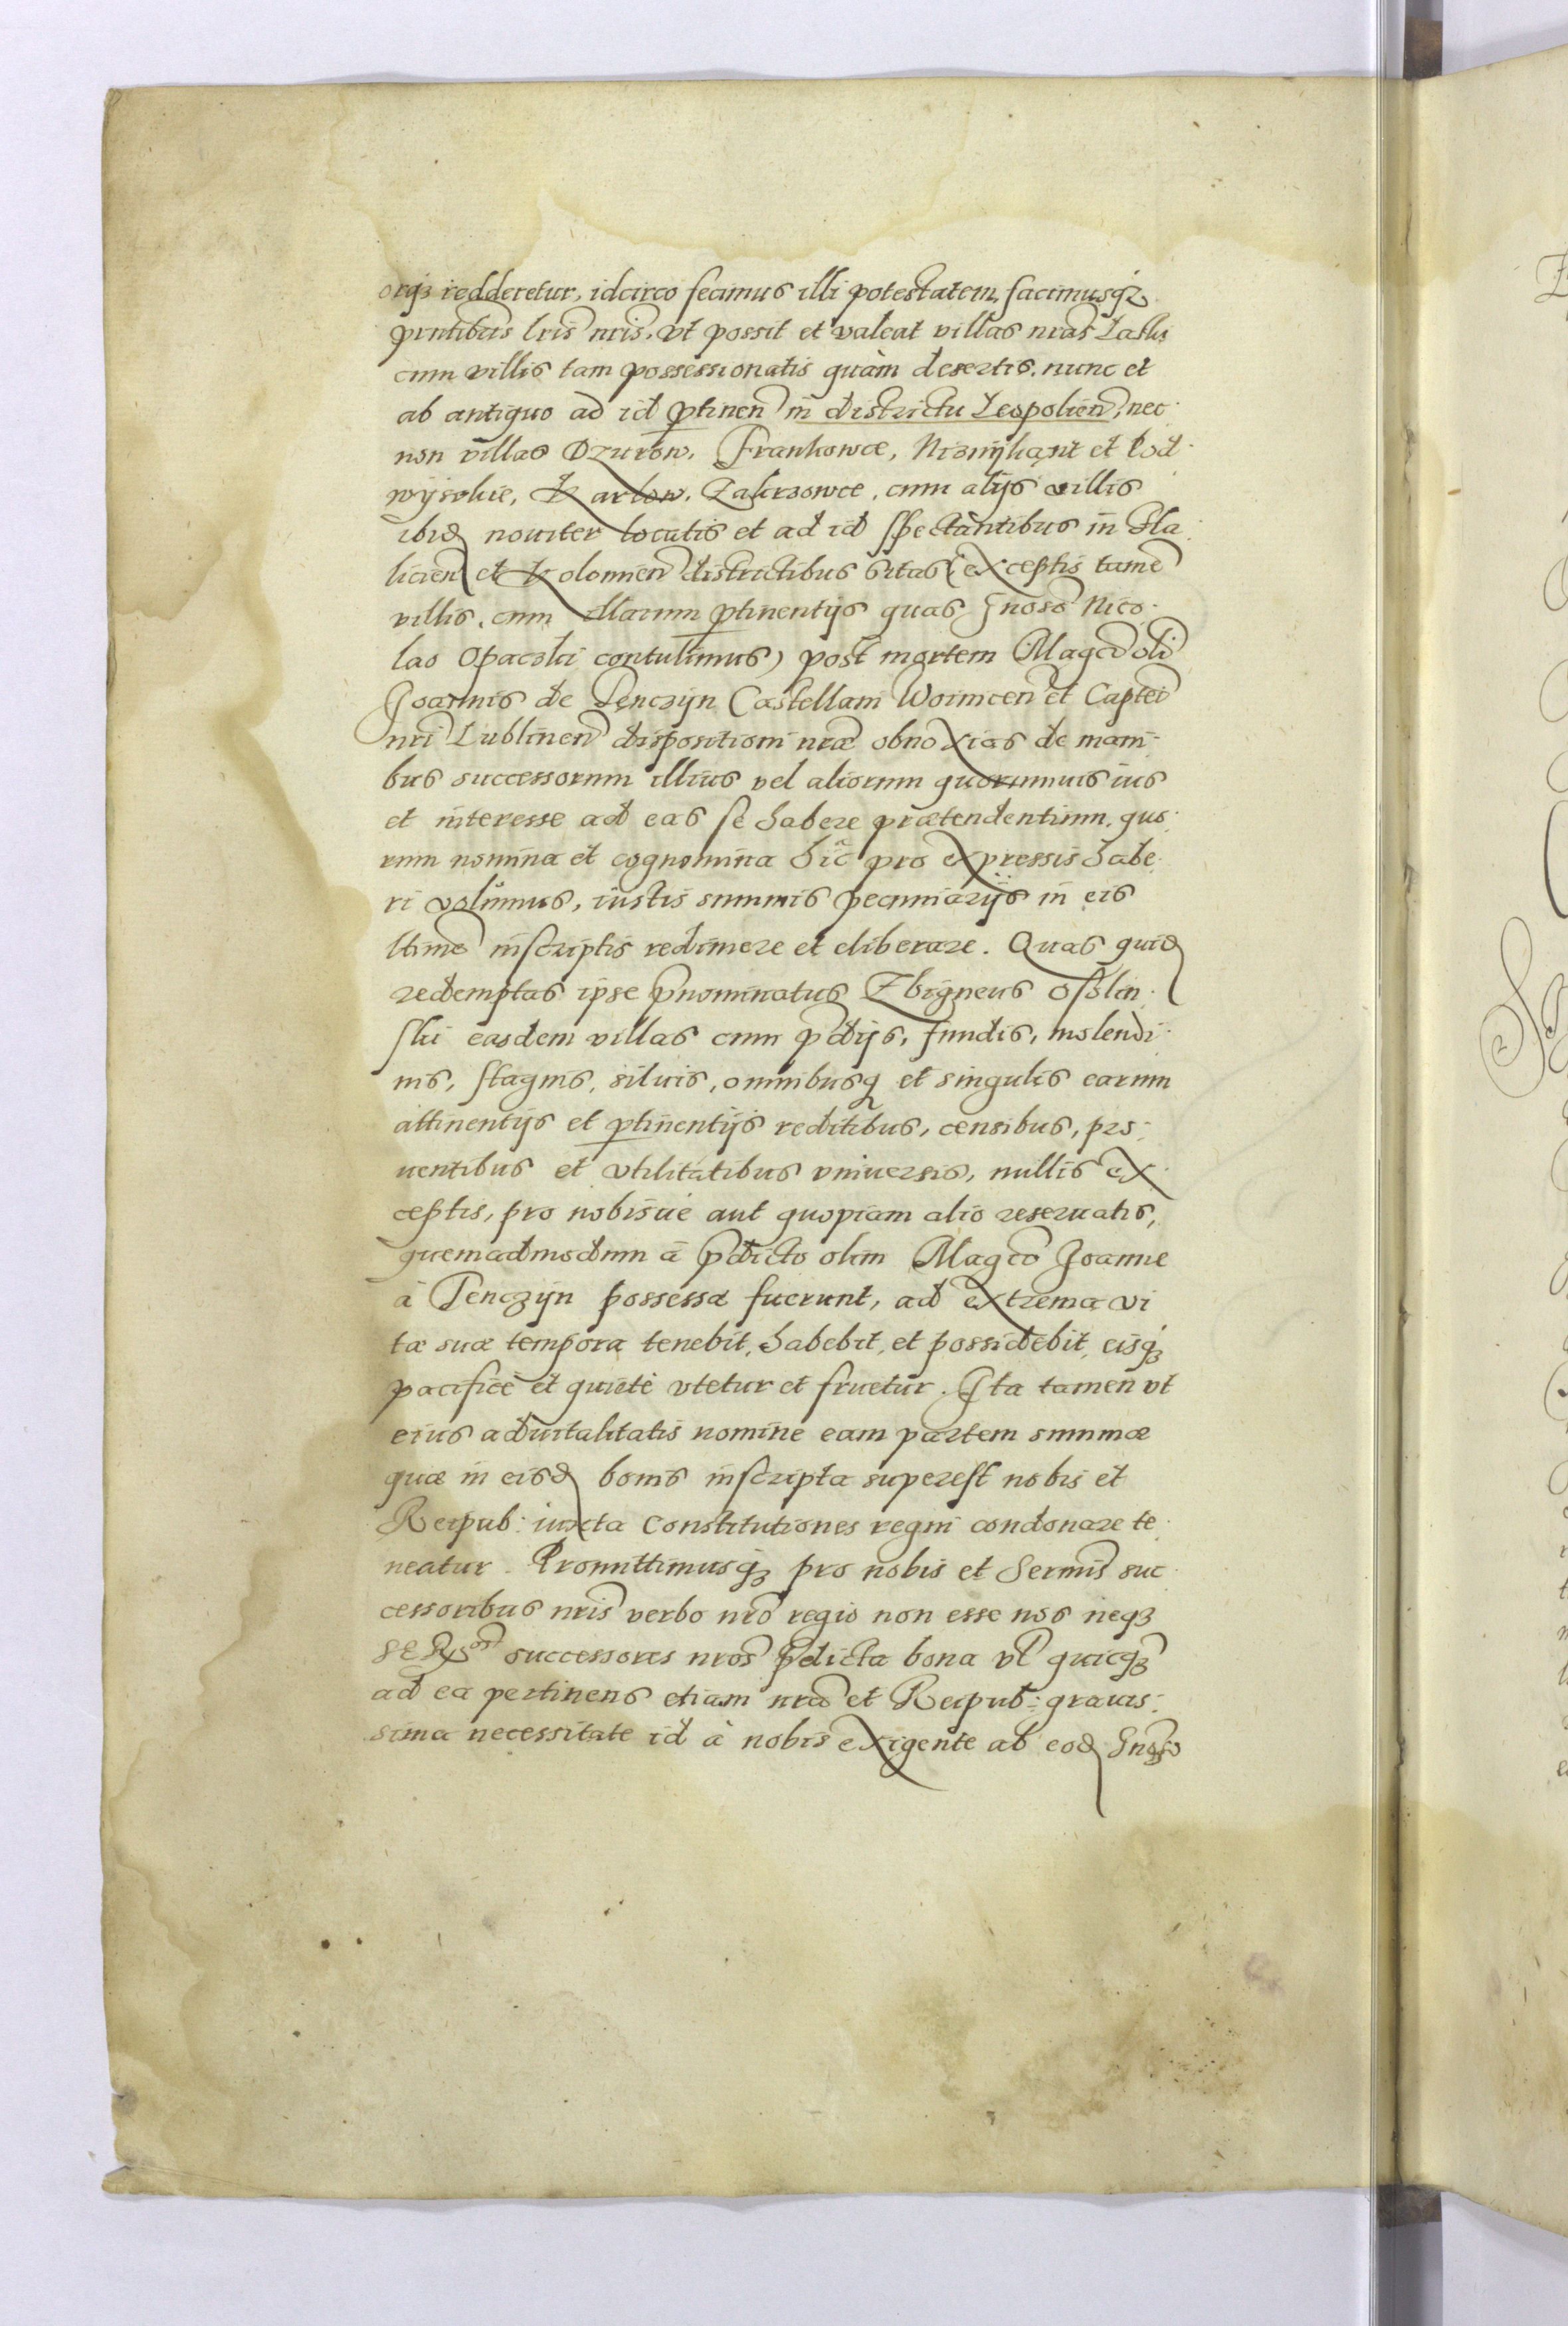 orq3 redderetur, idcirco fecimus illi potestatem, facimusq3
pntibus lris nris, vt possit et valeat villas nras Laski
cum villis tam possessionatis quàm desertis, nunc et
ab antiquo ad id ptinen in districtu Leopolien, nec
non villas Dzurow, Frankowce, Niznij et Pod
wÿsokie, Karlow, Zakrzowce, cum alijs villis
ibid nouiter locatis et ad id spectantibus in Ha
licien et Kolomien districtibus sitas (exceptis tame
villis, cum illarum ptinentijs quas Gnoso Nico
lao Opacski contulimus) post mortem Magci oli
Joannis de Tenczÿn Castellani Woinicen et Captei
nri Lublinen dispositioni nrae obnoxias de mani
bus successorum illius vel aliorum quorumuis ius
et interesse ad eas se habere praetendentium, quo
rum nomina et cognomina hic pro expressis habe
ri volumus, iustis summis pecuniarijs in eis
ltime inscriptis redimere et eliberare. Quas quid
redemptas ipse pnominatus Zbigneus Ossolin
ski easdem villas cum pdijs, fundis, molendi
nis, stagnis, siluis, omnibusq et singulis earum
attinentijs et ptinentijs reditibus, censibus, pro
uentibus et vtilitatibus vniuersis, nullis ex
ceptis, pro nobisue aut quopiam alio reseruatis,
quemadmodum à pdicto olim Magco Joanne
à Tenczÿn possessa fuerunt, ad extrema vi
tae suae tempora tenebit, habebit, et possidebit, eisq3
pacificè et quietè vtetur et fruetur. Ita tamen vt
eius aduitalitatis nomine eam partem summae
quae in eisd bonis inscripta superest nobis et
Reipub: iuxta Constitutiones regni condonare te
neatur. Promittimusq3 pro nobis et Sermis suc
cessoribus nris verbo nro regio non esse nos neq3
successores nros pdicta bona vl quicq3
ad ea pertinens etiam nra et Reipub: grauis
sima necessitate id à nobis exigente ab eod Gnoso